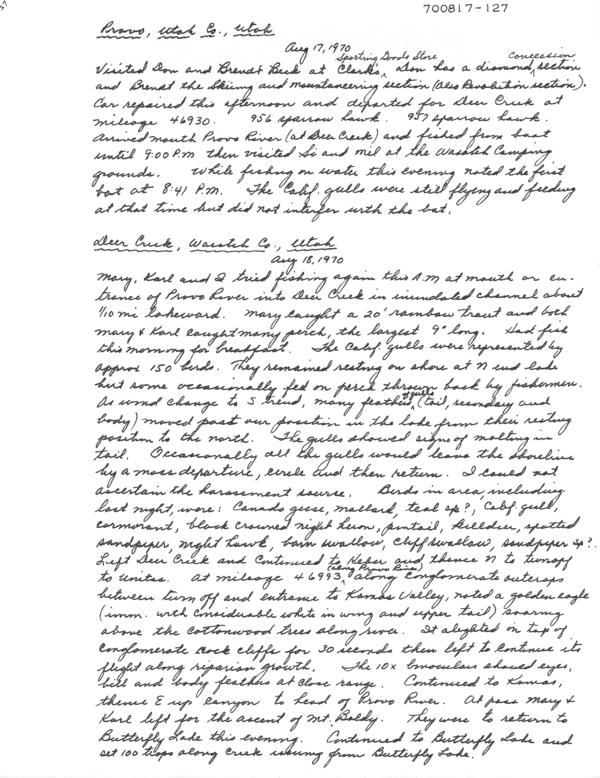 700817-127
Provo, Utah Co., Utah
Aug 17, 1970
Sporting Goods Store concession
Visited Don and Brendt Beck at Clark's, Don has a diamond section
and Brendt the skiing and mountaineering section (Also Revolution section).
Car repaired this afternoon and departed for Deer Creek at
mileage 46930. 956 sparrow hawk. 957 sparrow hawk.
Arrived mouth Provo River (at Deer Creek) and fished from boat
until 9:00 P.M. then visited Si and Mil at the Wasatch Camping
grounds. While fishing on water this evening noted the first
bat at 8:41 P.M. The Calif. gulls were still flying and feeding
at that time but did not interfer with the bat.
Deer Creek, Wasatch Co., Utah
Aug 18, 1970
Mary, Karl and I tried fishing again this A.M at mouth or en-
trance of Provo River into Deer Creek in inundated channel about
1/10 mi lakeward. Mary caught a 20" rainbow trout and both
Mary & Karl caught many perch, the largest 9" long. Had fish
this morning for breakfast. The Calif. gulls were represented by
approx 150 birds. They remained resting on shore at N end lake
but some occasionally fed on perch thrown back by fishermen.
As wind change to S trend, many feathers of gulls (tail, secondary and
body) moved past our position in the lake from their resting
position to the north. The gulls showed signs of molting in
tail. Occasionally all the gulls would leave the shoreline
by a mass departure, circle and then return. I could not
ascertain the harassment source. Birds in area, including
last night, were: Canada geese, mallard, teal sp?, Calif. gull,
cormorant, black crowned night heron, pintail, killdeer, spotted
sandpiper, night hawk, barn swallow, cliff swallow, sandpiper sp?.
Left Deer Creek and continued to Heber and thence N to turnoff
to Uintas. At mileage 46993, (along Provo River) along conglomerate outcrops
between turn off and entrance to Kamas Valley, noted a golden eagle
(imm. with considerable white in wing and upper tail) soaring
above the cottonwood trees along river. It alighted on top of
conglomerate rock cliffs for 30 seconds then left to continue its
flight along riparian growth. The 10x binoculars showed eyes,
bill and body feathers at close range. Continued to Kamas,
thence E up canyon to head of Provo River. At pass Mary &
Karl left for the ascent of Mt. Baldy. They were to return to
Butterfly Lake this evening. Continued to Butterfly Lake and
set 100 traps along creek issuing from Butterfly Lake.